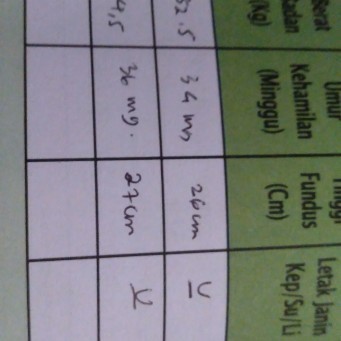 Berat Badan (Kg)
Umur Kehamilan (Minggu)
Tinggi Fundus (Cm)
Letak Janin Kep/Su/Li
34 mg
26 cm
36 mg.
27cm